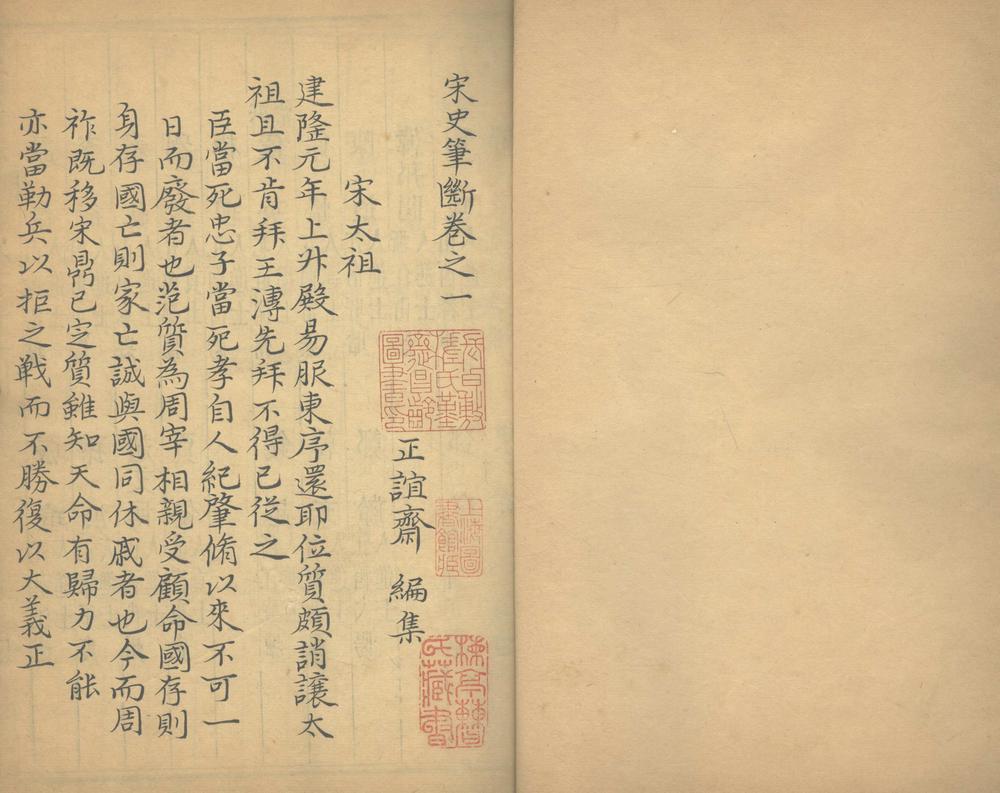 宋史筆斷卷之一
正誼齋 編集
宋太祖
建隆元年上升殿易服東序還即位質頗誚讓太
祖且不肯拜王溥先拜不得已從之
臣當死忠子當死孝自人紀肇脩以來不可一
日而廢者也范質為周宰相親受顧命國存則
身存國亡則家亡誠與國同休戚者也今而周
祚既移宋鼎已定質雖知天命有歸力不能
亦當勒兵以拒之戦而不勝復以大義正
長白敷槎氏堇齋昌齡圖書印
上海圖書館藏
楝亭曹氏藏書